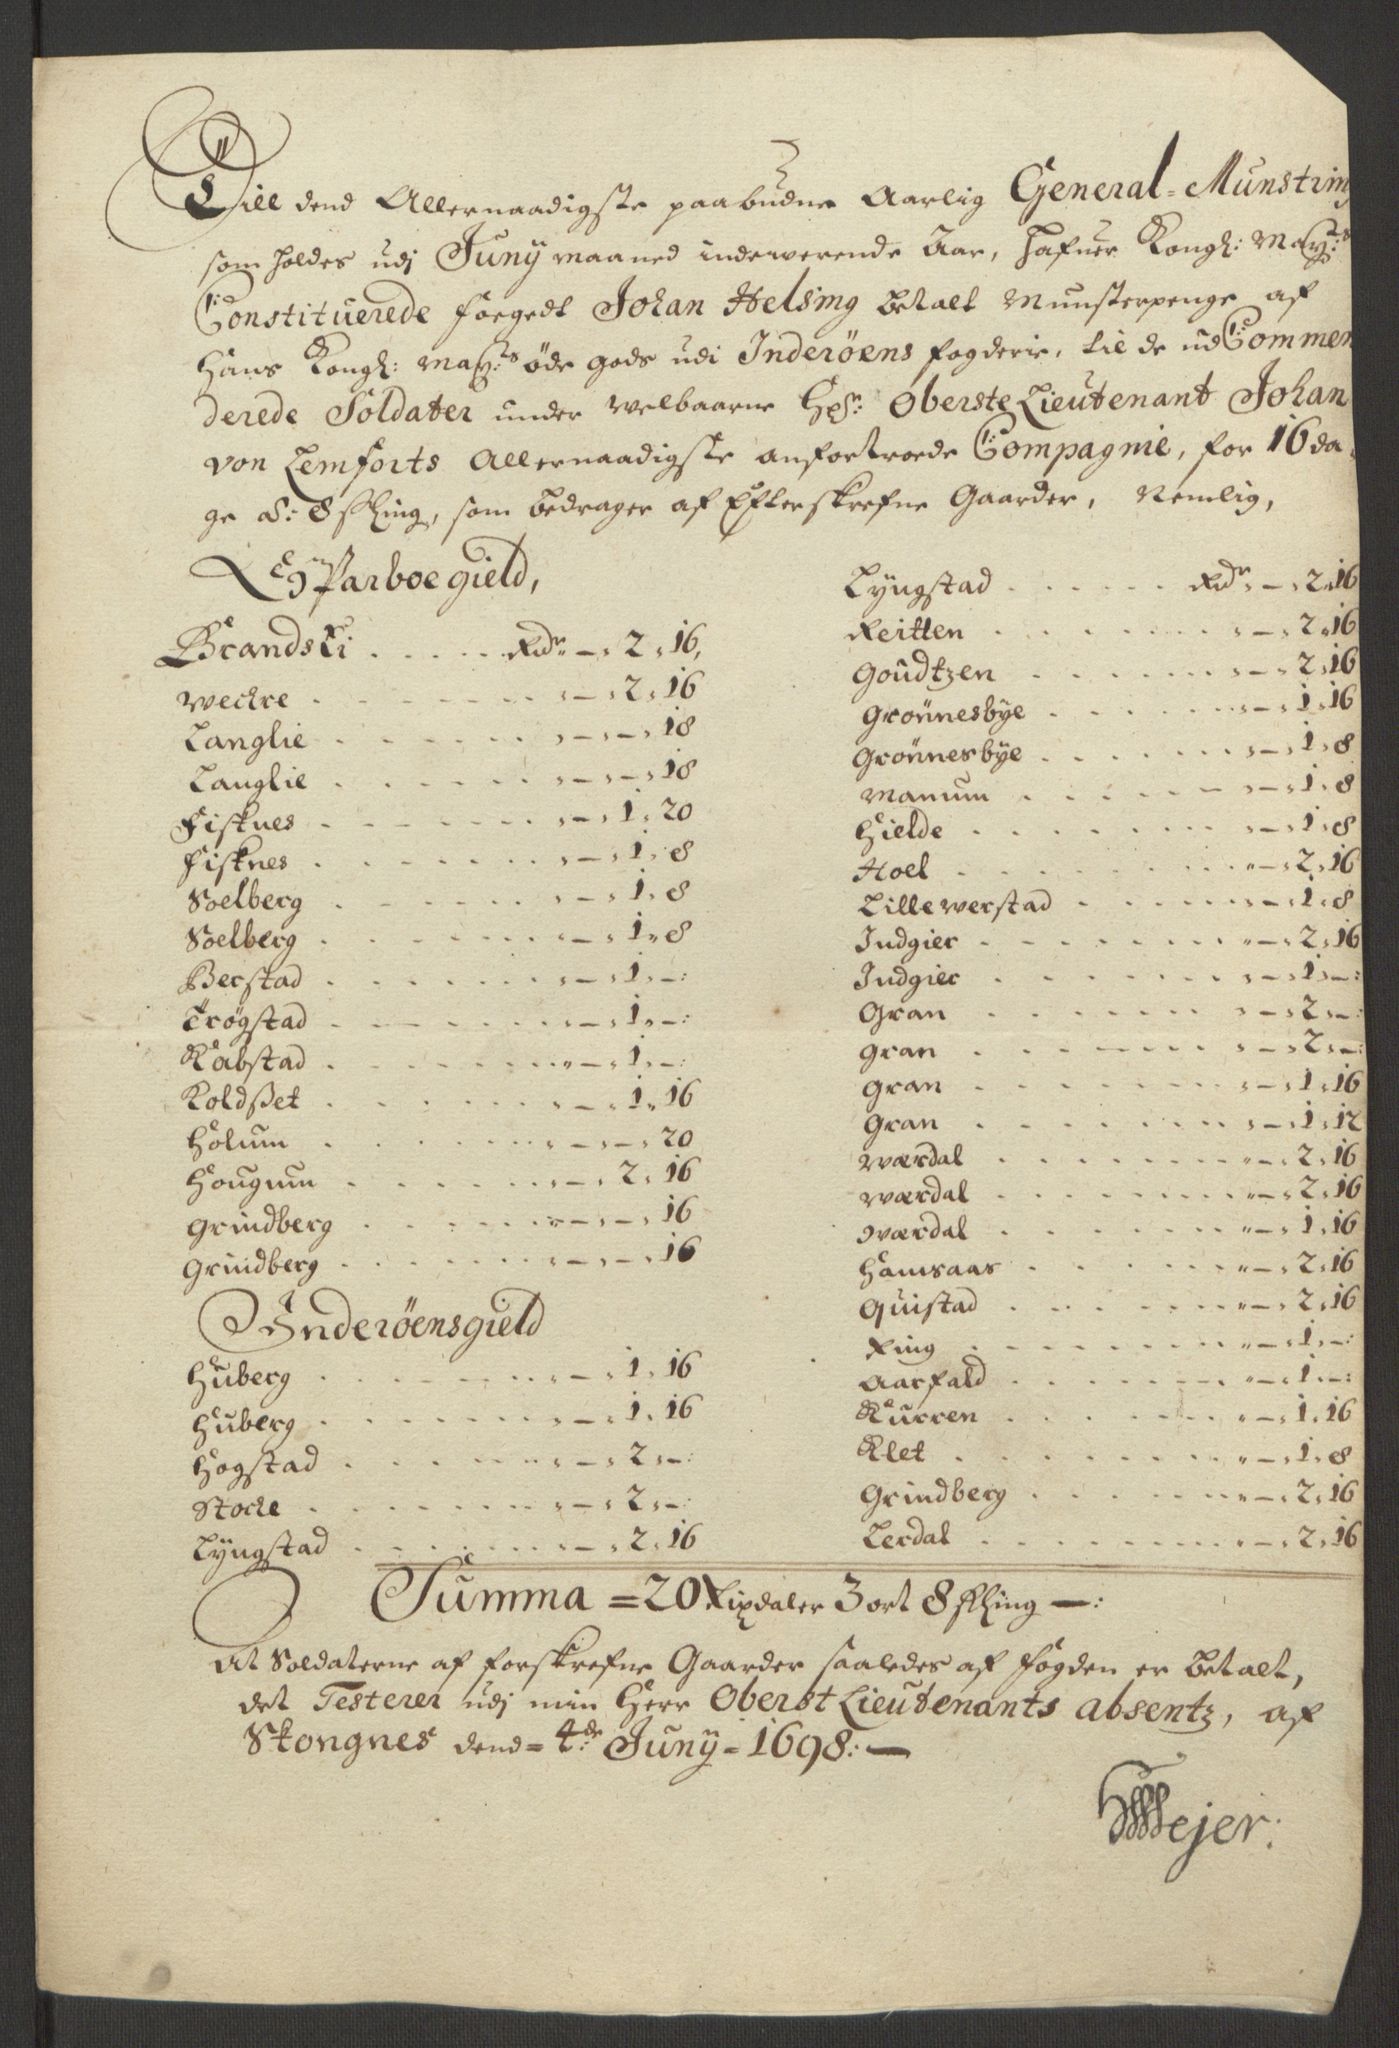 Till dend Allernaadigste paabudne Aarlig General-Munstring
som holdes udj Juny maaned indewerende Aar, hafuer Kongl: May:ts
Constituerede Foegedt Johan Helsing betalt Munsterpenge af
Hans Kongl: May:ts øde gods udi Inderöens fogderie, til de udCommen
derede Soldater under Welbaarne Hr: Oberste Lieutenant Johan
von Lemforts Allernaadigste anfortroede Compagnie, for 16 da
ge à: 8 skhing, som bedrager af Efterskrefne Gaarder, Nemlig,
Sparboe gield,
Brandski . . . . . Rdr - , 2 , 16,
Weckre . . . . . . . , - , 2 , 16
Langlie . . . . . . . , - , - , 18
Langlie . . . . . . . , - , - , 18
Fisknes . . . . . . . , - , 1 , 20
Fisknes . . . . . . . , - , 1 , 8
Soelberg . . . . . . . , - , 1 , 8
Soelberg . . . . . . . , - , 1 , 8
Berstad . . . . . . . , - , 1 , -:
Trögstad . . . . . . . , - , 1 , -:
Rabstad . . . . . . . , - , 1 , -:
Koldsset . . . . . . . , - , 1 , 16
Holum . . . . . . . , - , - , 20
Hougum . . . . . . . , - , 2 , 16
Grindberg . . . . . . , - , - , 16
Grindberg . . . . . . , - , - , 16
Inderöensgield
Huberg . . . . . . . , - , 1 , 16
Huberg . . . . . . . , - , 1 , 16
Hogstad . . . . . . . , - , 2 , -:
Stocke . . . . . . . , - , 2 , -:
Lyngstad . . . . . . , - , 2 , 16
Lÿngstad . . . . . . Rdr , - , 2 , 16
Reitten . . . . . . . , - , 2 , 16
Goudtzen . . . . . . . , - , 2 , 16
Grönnesbÿe . . . . . . , - , 1 , 16
Grönnesbÿe . . . . . . , - , 1 , 8
Manum . . . . . . . , - , 1 , 8
Hielde . . . . . . . , - , 1 , 8
Hoel . . . . . . . , - , 2 , 16
Lille werstad . . . . . , - , 1 , 8
Indgier . . . . . . . , - , 2 , 16
Indgier . . . . . . . , - , 1 , -:
Gran . . . . . . . , - , 2 , -:
Gran . . . . . . . , - , 2 , -:
Gran . . . . . . . , - , 1 , 16
Gran . . . . . . . , - , 1 , 12
Wærdal . . . . . . . , - , 2 , 16
Wærdal . . . . . . . , - , 2 , 16
Wærdal . . . . . . . , - , 1 , 16
Hamsaas . . . . . . . , - , 2 , 16
Quistad . . . . . . . , - , 2 , 16
Ring . . . . . . . , - , 1 , -:
Aarfald . . . . . . . , - , 1 , -:
Kurren . . . . . . . , - , 1 , 16
Klet . . . . . . . , - , 1 , 8
Grindberg . . . . . . , - , 2 , 16
Lerdal . . . . . . . , - , 2 , 16
Summa = 20 Rixdaler 3 ort 8 skhing -:
At Soldaterne af forskrefne Gaarder saaledes af fogden er betalt,
det Testerer udj min Herr Oberst Lieutenants absentz, af
Stongnes dend = 4de: Junÿ = 1698: -
HWejer: